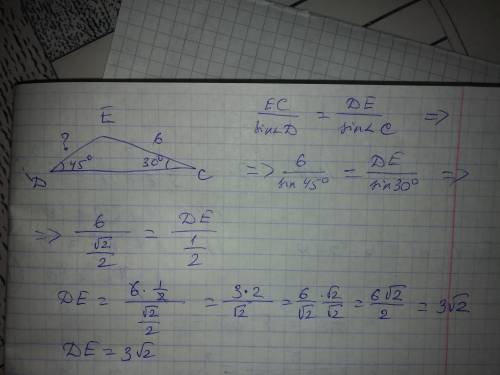 E
? 6
45° 30°
D C
EC/sin∠D = DE/sin∠C =>
=> 6/sin 45° = DE/sin 30° =>
=> 6/(√2/2) = DE/(1/2)
DE = (6·1/2)/(√2/2) = 3·2/√2 = 6/√2 · √2/√2 = 6√2/2 = 3√2
DE = 3√2